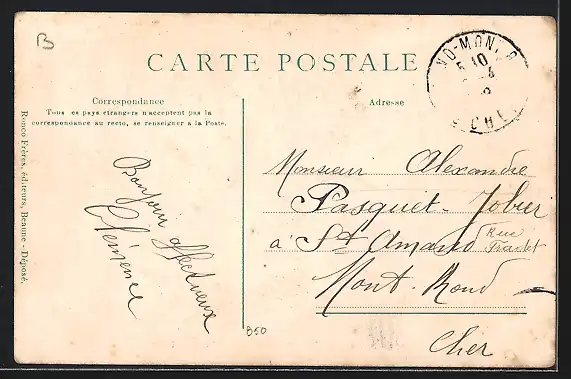 B
CARTE POSTALE
Correspondance
Tous ces pays étrangers n'acceptent pas la
correspondance au recto, se renseigner à la Poste.
Adresse
ND-MON
CHE
Ronco Frères, éditeurs, Beaune - Déposé.
Bonjour affectueux
Clémence
Monsieur Alexandre
Pasquet-Jobier
à St Amand Rue
Mont-Rond
Cher
B50